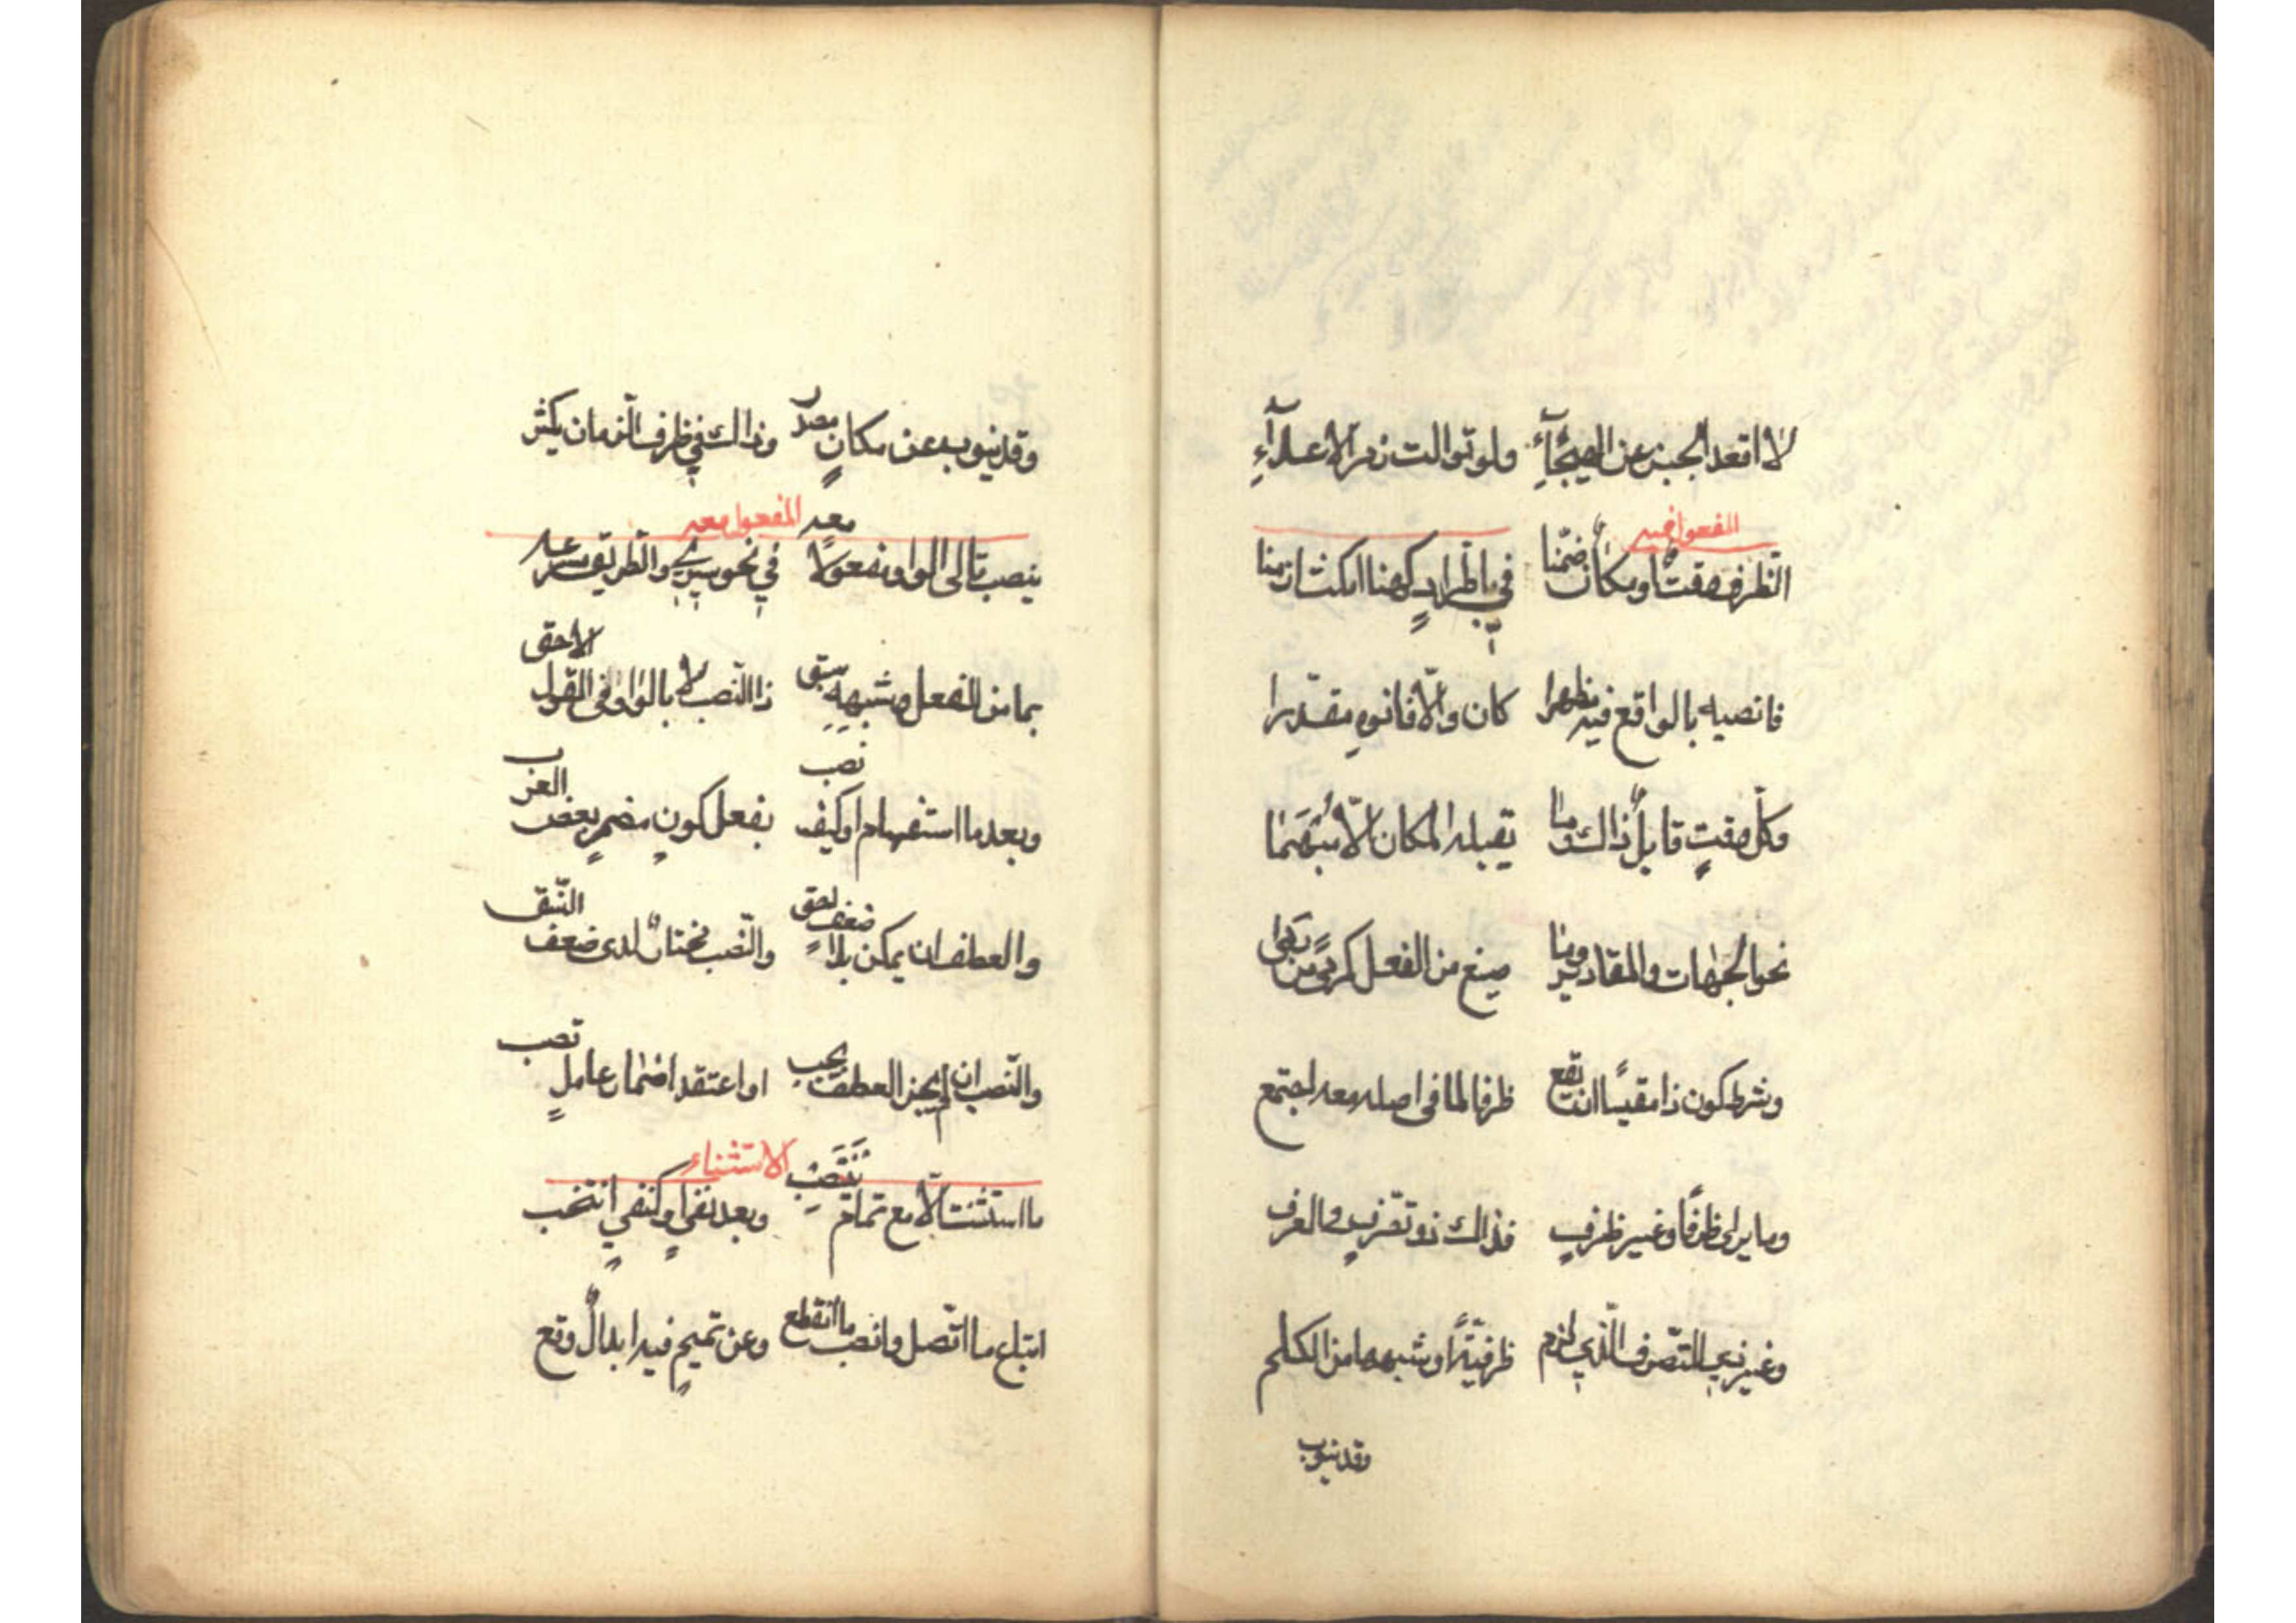 لا اقعد الجبن عن الهيجآءِ ولو توالت زمر الاعدآءِ
المفعول فيه
الظرف وقتٌ او مكانٌ ضمّنا في باطّرادٍ كهنا امكث ازمنا
فانصبه بالواقع فيه مظهرا كان والّا فانوهِ مقدّرا
وكلّ وقتٍ قابلٌ ذاك وما يقبله المكان الّا مُبْهَمَا
نحو الجهات والمقادير وما صيغ من الفعل كمرمًى من رَمَى
وشرط كون ذا مقيسًا ان يقع ظرفا لما في اصله معه اجتمع
وما يرى ظرفًا وغير ظرفٍ فذاك ذو تصّرفٍ في العرف
وغير ذي التّصرف الّذي لزم ظرفيّةً او شبهها من الكلم
وقد ينوب
وقد ينوب عن مكانٍ مصدر وذاك في ظرف الزّمان يكثر
المفعول معه
ينصب تالى الواو مفعولًا معه في نحو سيري والطّريق مسرعه
بما من الفعل وشبههِ سبق ذا النّصب لا بالواو في القول الاحق
وبعد ما استفهام او كيف نصب بفعل كونٍ مضمرٍ بعض العرب
والعطف ان يمكن بلا ضعفٍ احق والنّصب مختارٌ لدى ضعف النّسق
والنّصب ان لم يجز العطف يجب او اعتقد اضمار عاملٍ تصب
الاستثناء
ما استثنت الّا مع تمامٍ يَنْتَصِب وبعد نفيٍ او كنفيٍ انتخب
اتباع ما اتّصل وانصب ما انقطع وعن تميمٍ فيه ابدالٌ وقع